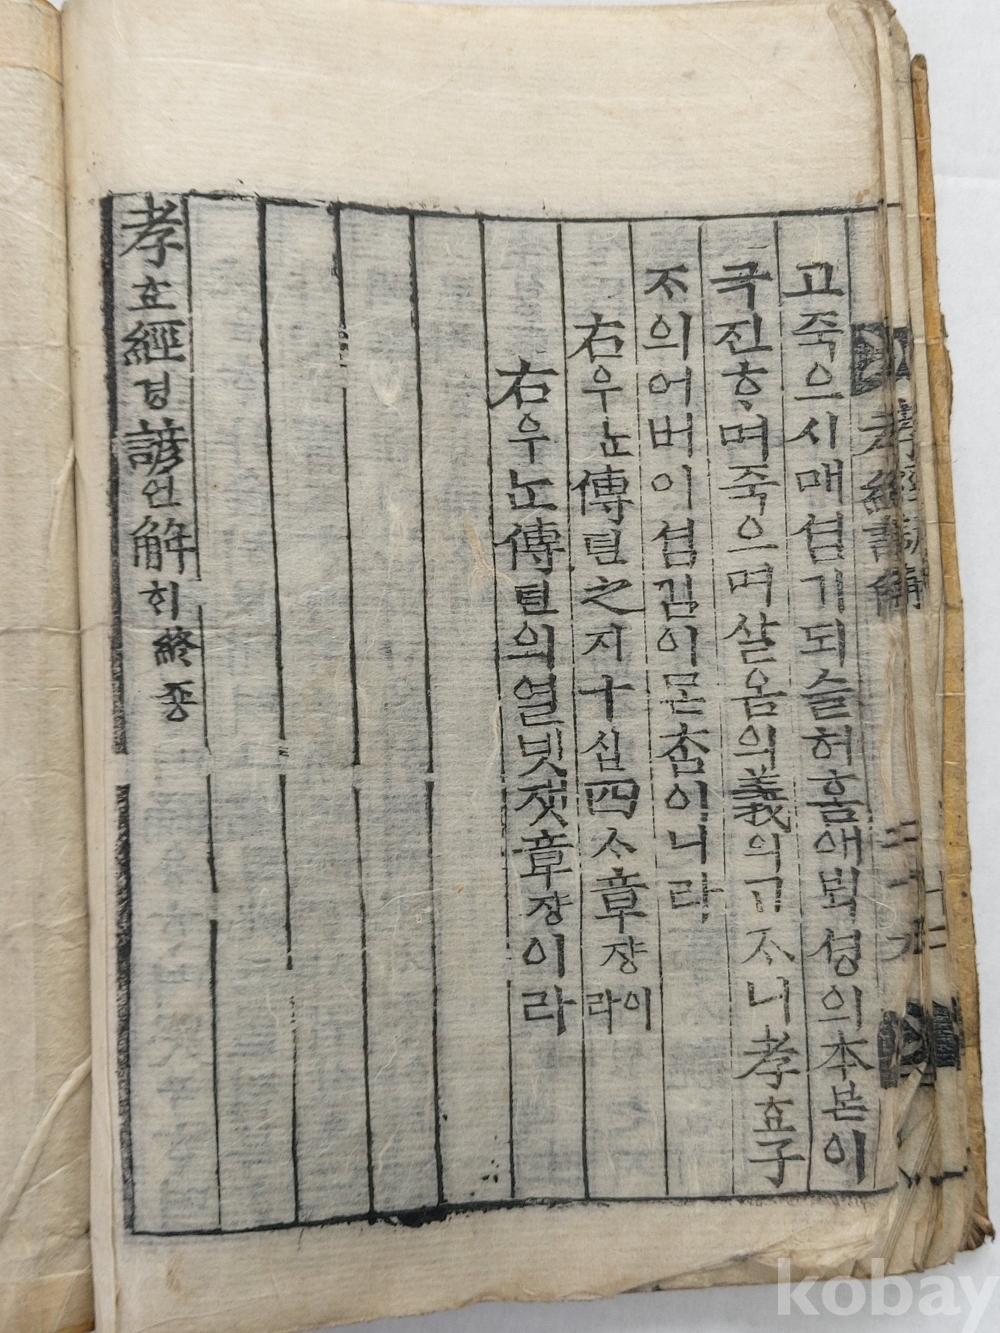 고죽으시매셤기되슬허홈애뢰셩의本본이
극진ᄒᆞ며죽으며살옴의義의ᄀᆞᄌᆞ니孝효子
ᄌᆞ의어버이셤김이ᄆᆞᄎᆞᆷ이니라
右우ᄂᆞᆫ傳뎐之지十십四ᄉᆞ章쟝이라
右우ᄂᆞᆫ傳뎐의열넷잿章쟝이라
孝효經경諺언解ᄒᆡ終죵
孝經諺解
二十九
kobay